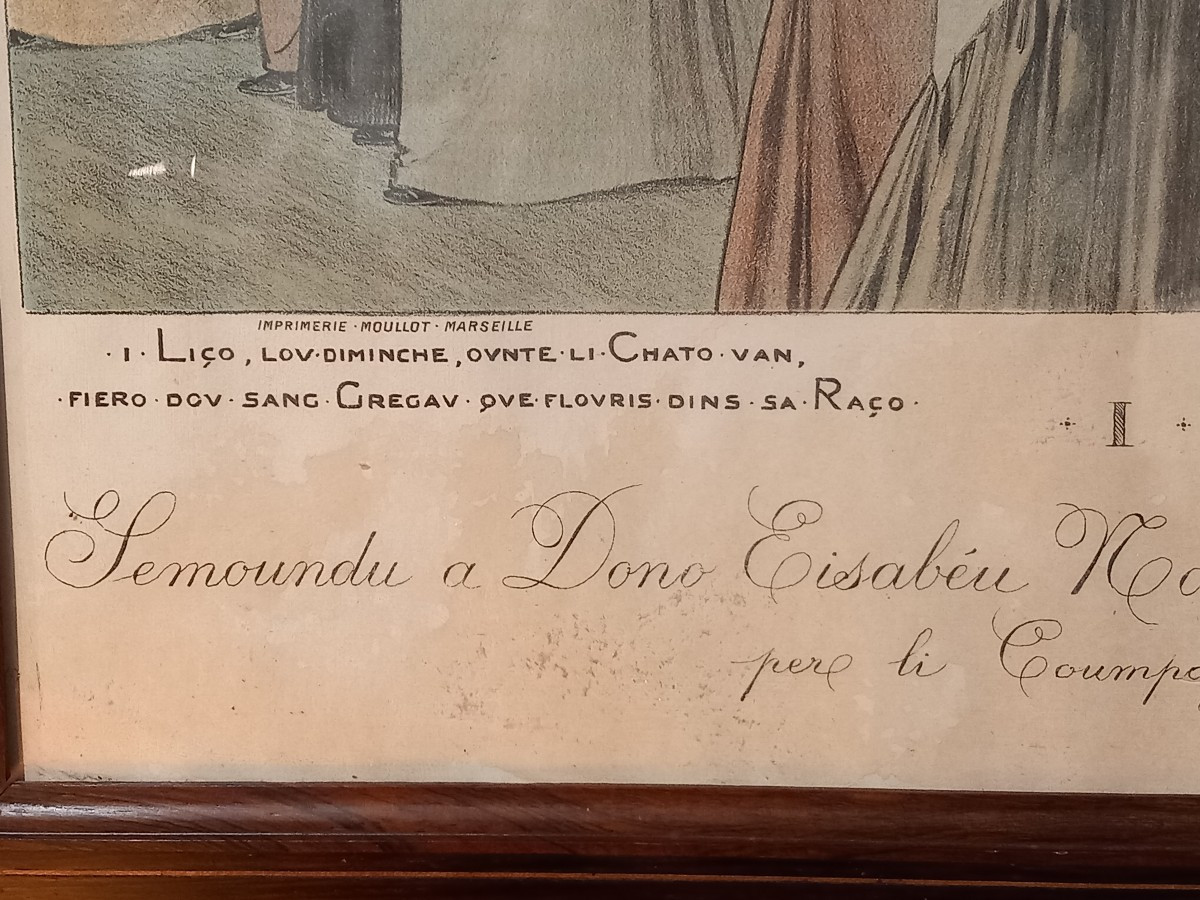 IMPRIMERIE · MOULLOT · MARSEILLE
· I · LIÇO, LOV · DIMINCHE, OVNTE · LI · CHATO · VAN,
· FIERO · DOV · SANG · GREGAV · QVE · FLOVRIS · DINS · SA · RAÇO ·
I
Semoundu a Dono Eisabéu
per li